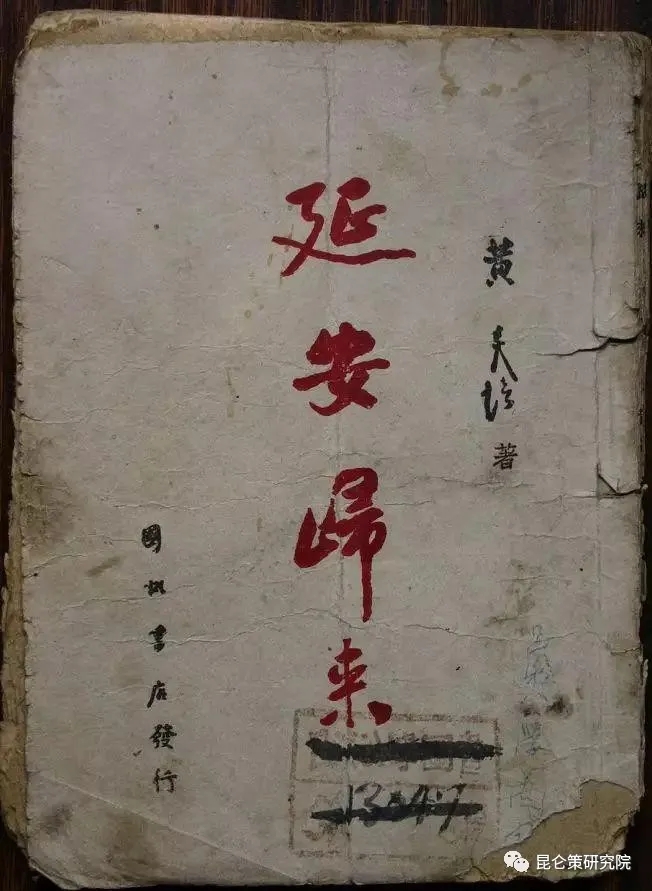 黄炎培著
延安歸来
國訊書店發行
13047
昆仑策研究院